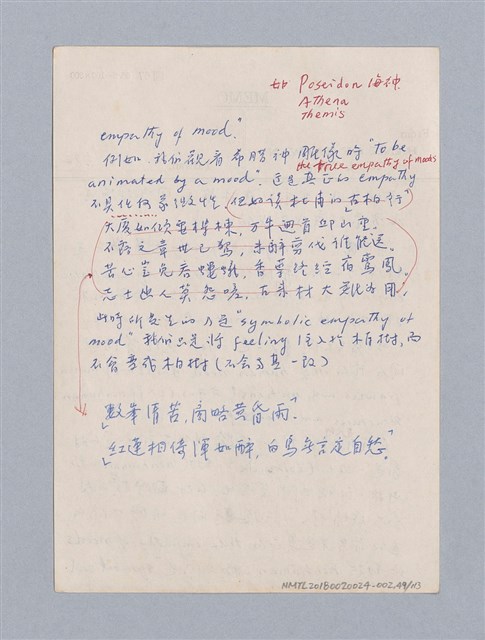 如 Poseidon 海神
Athena
themis
empathy of mood."
例如 我们觀看希腊神雕像時 "To be
the true empathy of moods
animated by a mood". 這是真正的 empathy
不具化何象徵性, 但如读杜甫的「古柏行」
大厦如傾要樑棟, 万牛迴首邱山重.
不露文章世已驚, 未辭剪伐誰能送.
苦心豈免容螻蟻, 香葉終經宿鸞鳳.
志士幽人莫怨嗟, 古來材大難為用.
此時所發生的乃是 "symbolic empathy of
mood" 我们只是將 feeling 注入於柏樹, 而
不会變成柏樹 (不会与其一致)
「數峯清苦, 商略黄昏雨.」
「紅蓮相倚渾如醉, 白鳥無言定自愁.」
NMTL20180020024-002.49/113